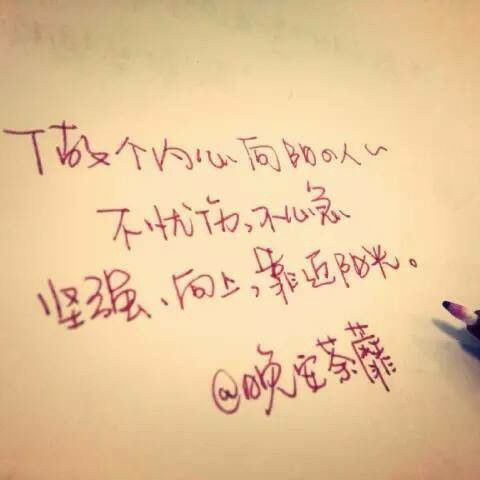 做个内心向阳的人
不忧伤,不心急
坚强、向上,靠近阳光。
@晚安荼蘼